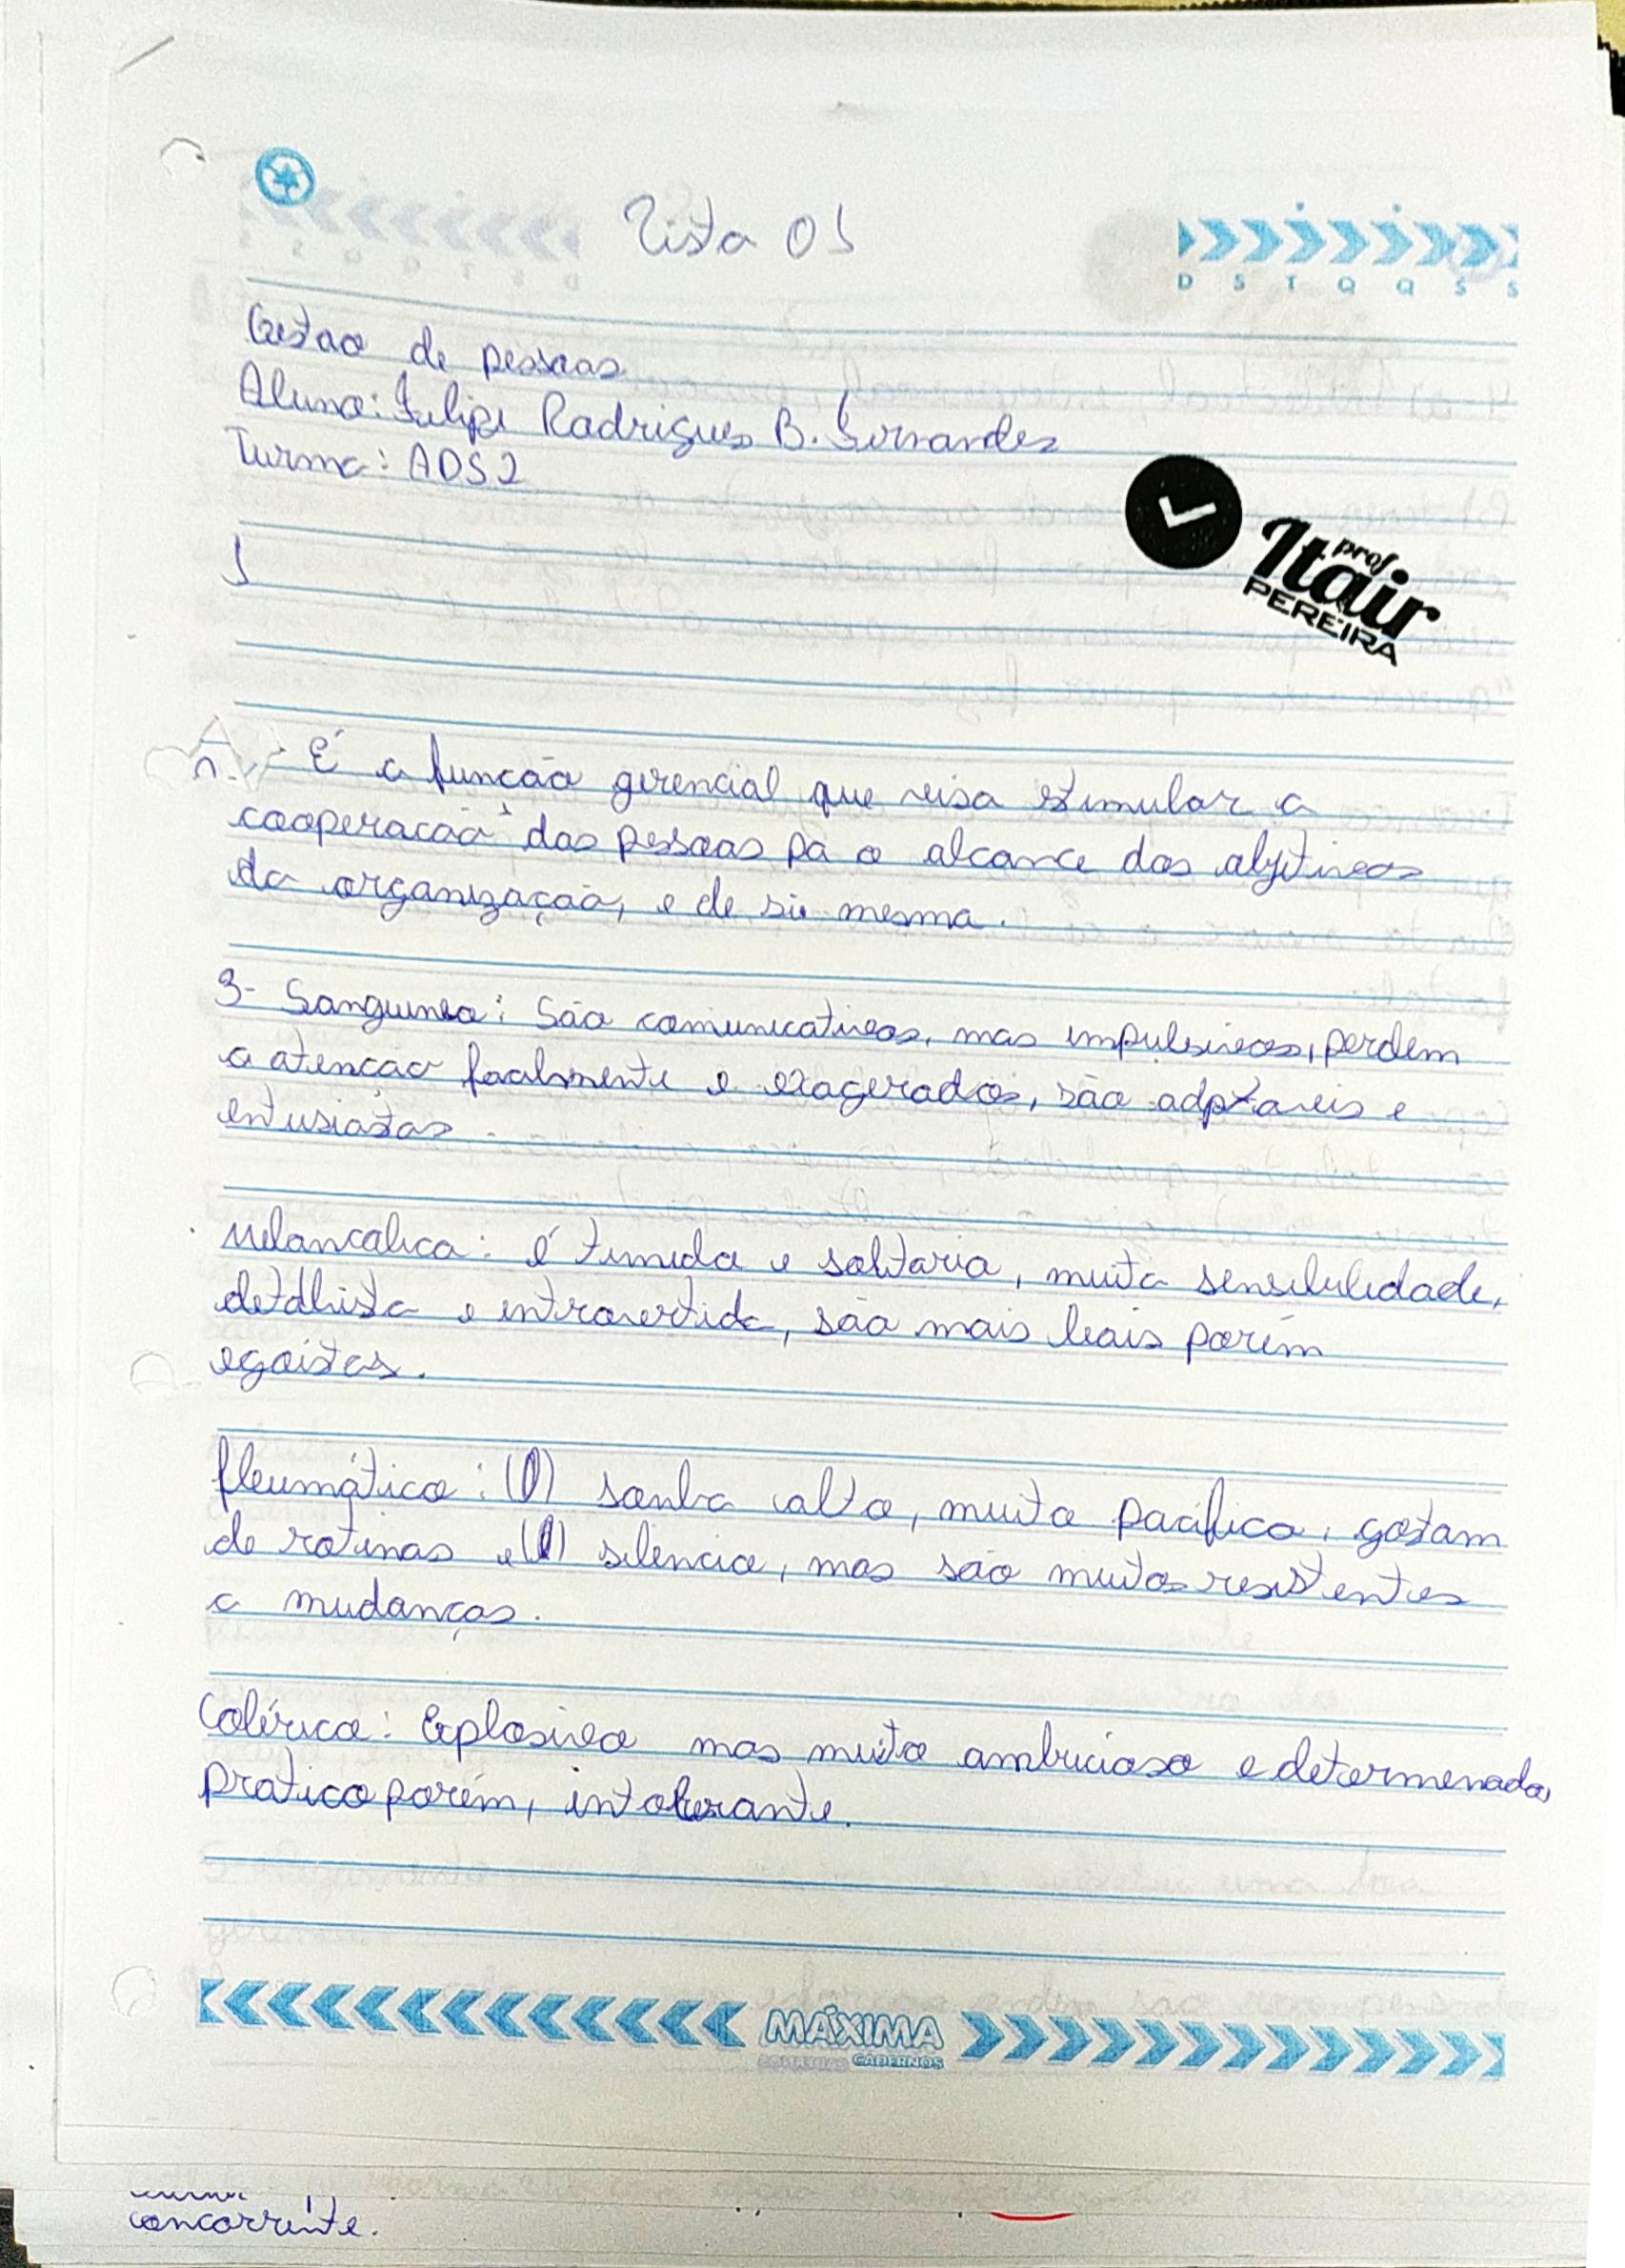 Lista 01
D S T Q Q S S
Gestao de pessoas
Aluno: Felipe Rodrigues B. Fernandes
Turma: ADS2
prof
Itair
PEREIRA
1
- É a funcão gerencial que visa estimular a
cooperacão das pessoas pa o alcance dos objetivos
da organização, e de si mesma.
3- Sanguineo: São comunicativos, mas impulsivos, perdem
a atencão facilmente e exagerados, são adptaveis e
entusiastas
Melancolica: é timida e solitaria, muita sensibilidade,
detalhista e introvertida, são mais leais porém
egoistas.
fleumático: sonha alto, muito pacifico, gostam
de rotinas e silencio, mas são muitos resistentes
a mudanças.
Colérico: Explosivo mas muito ambicioso e determenado,
pratico porém, intolerante.
MÁXIMA
CADERNOS
concorrente.